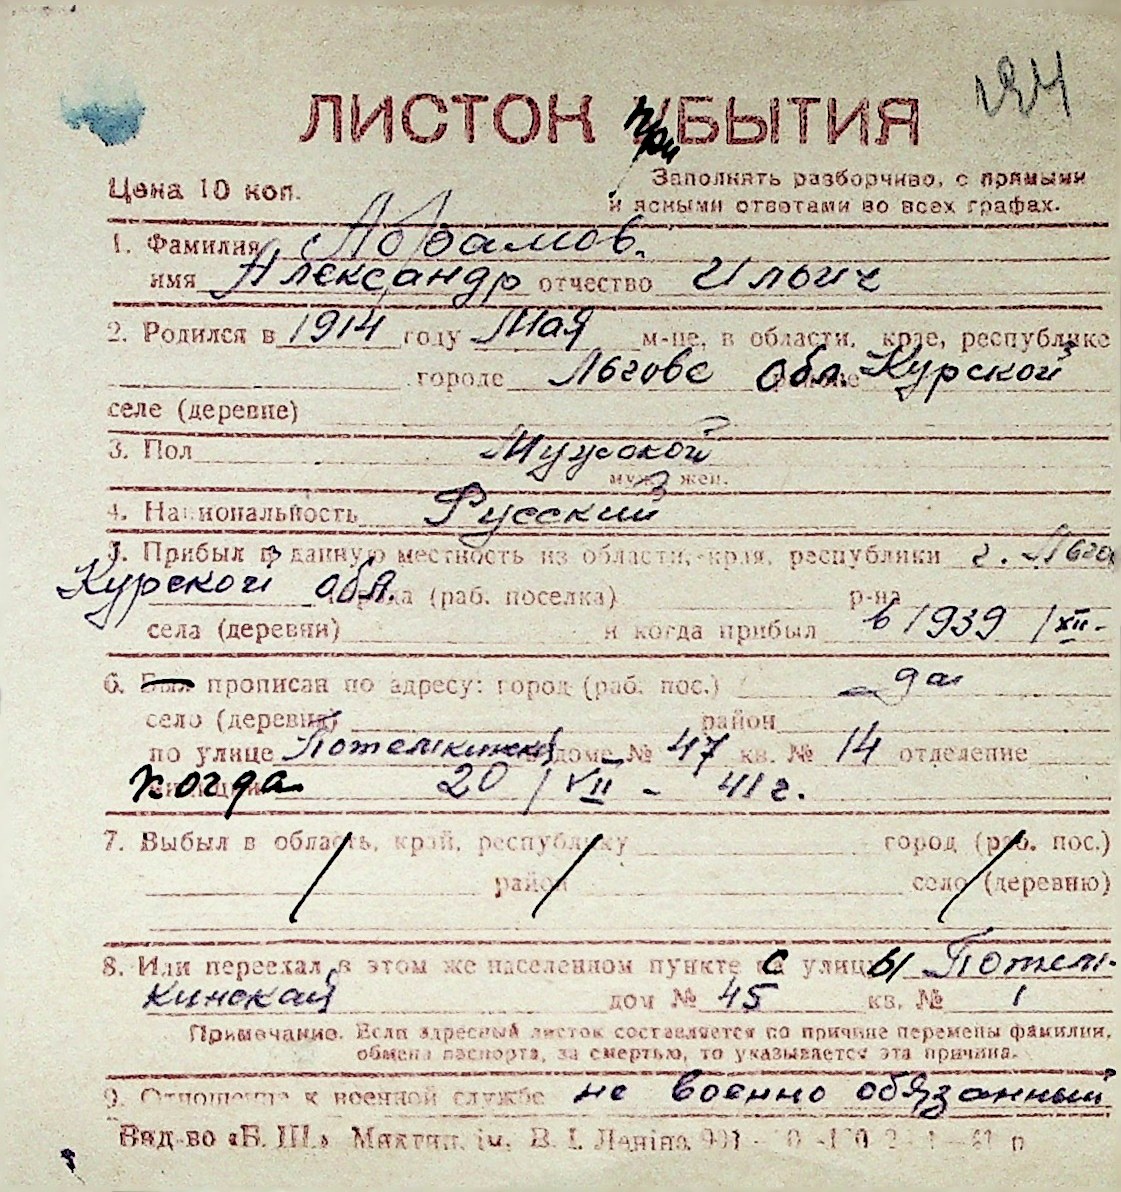 ЛИСТОК прибЫТИЯ
Цена 10 коп.
Заполнять разборчиво, с прямыми
и ясными ответами во всех графах.
1. Фамилия Абрамов.
имя Александр отчество Ильич
2. Родился в 1914 году Мая м-це, в области, крае, республике
городе Льгове обл. Курской
селе (деревне)
3. Пол Мужской
муж. жен.
4. Национальность Русский
5. Прибыл в данную местность из области, края, республики г. Льго
Курской обл. города (раб. поселка) р-на
села (деревни) и когда прибыл в 1939 /XII-
6. Был прописан по адресу: город (раб. пос.) да
село (деревня) район
по улице Потемкинск дом № 47 кв. № 14 отделение
когда 20/VII - 41 г.
7. Выбыл в область, край, республику город (раб. пос.)
район село (деревню)
8. Или переехал в этом же населенном пункте с улицы Потем-
кинская дом № 45 кв. № 1
Примечание. Если адресный листок составляется по причине перемены фамилии,
обмена паспорта, за смертью, то указывается эта причина.
9. Отношение к военной службе не военно обязанный
Вид-во «Б. Ш.» Миктип. ім. В. І. Леніна